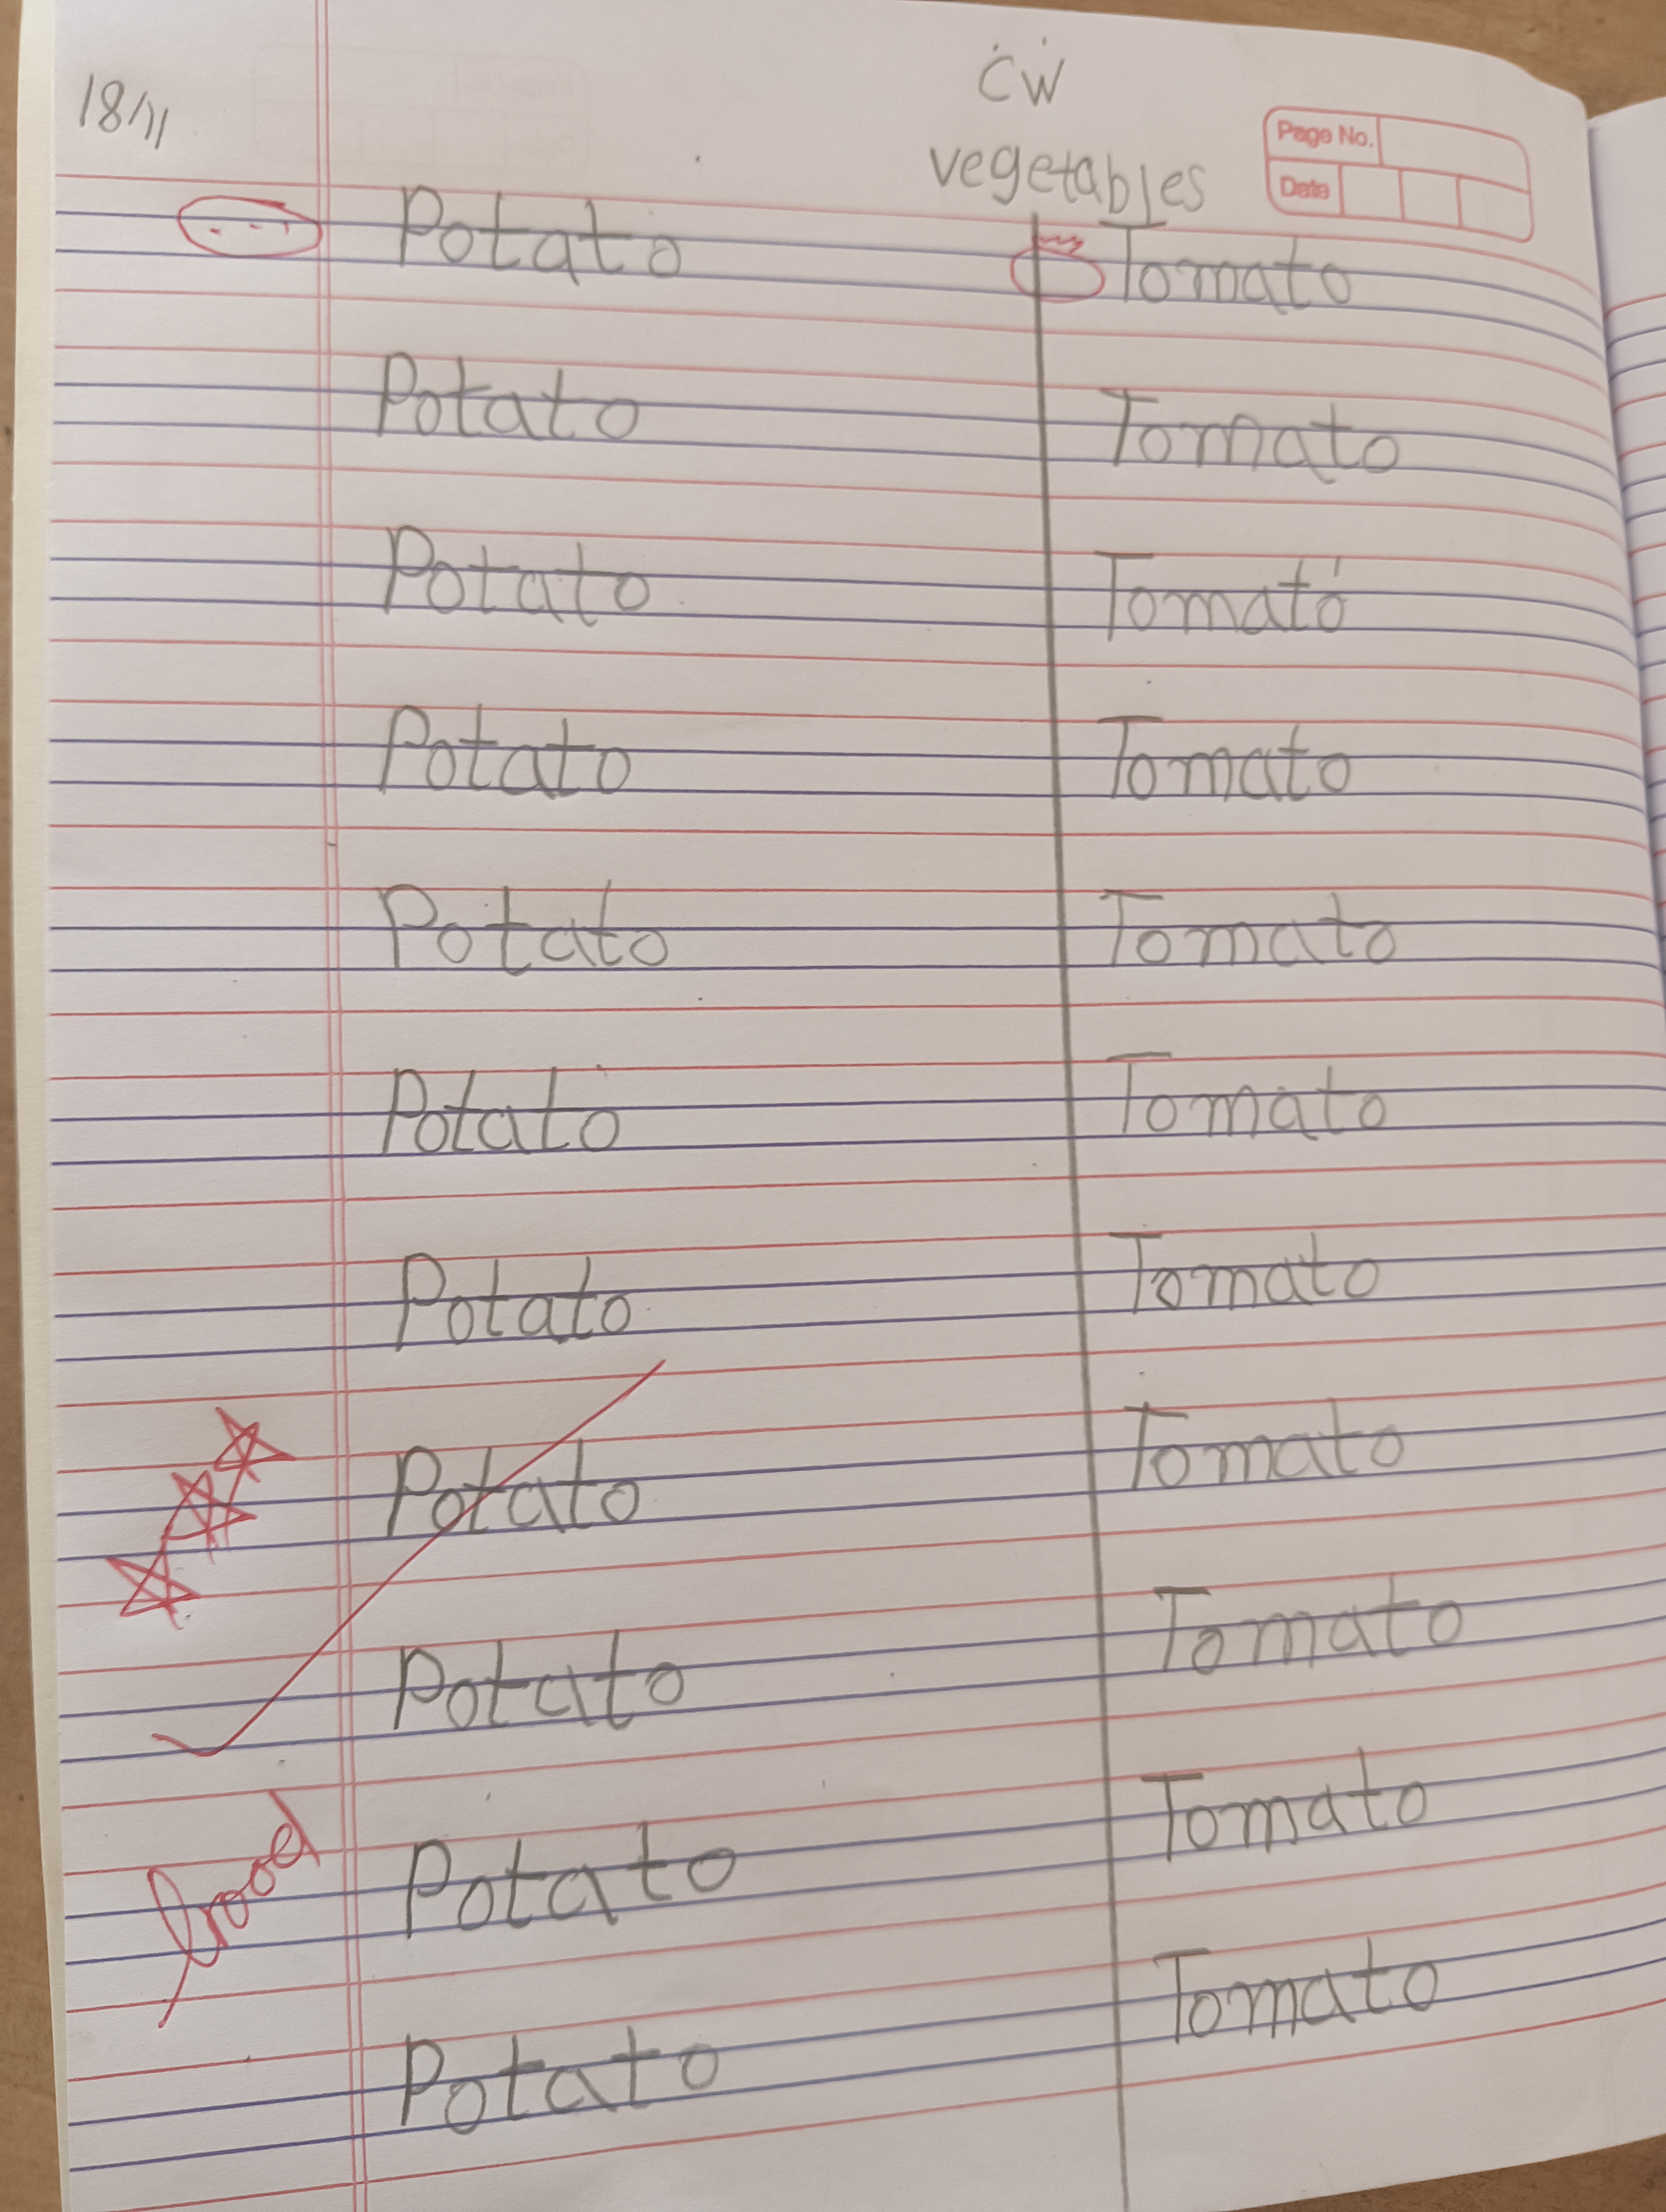 CW
18/11
vegetables
Page No.
Date
Potato Tomato
Potato Tomato
Potato Tomato
Potato Tomato
Potato Tomato
Potato Tomato
Potato Tomato
Potato Tomato
Potato Tomato
Potato Tomato
Good
Potato Tomato